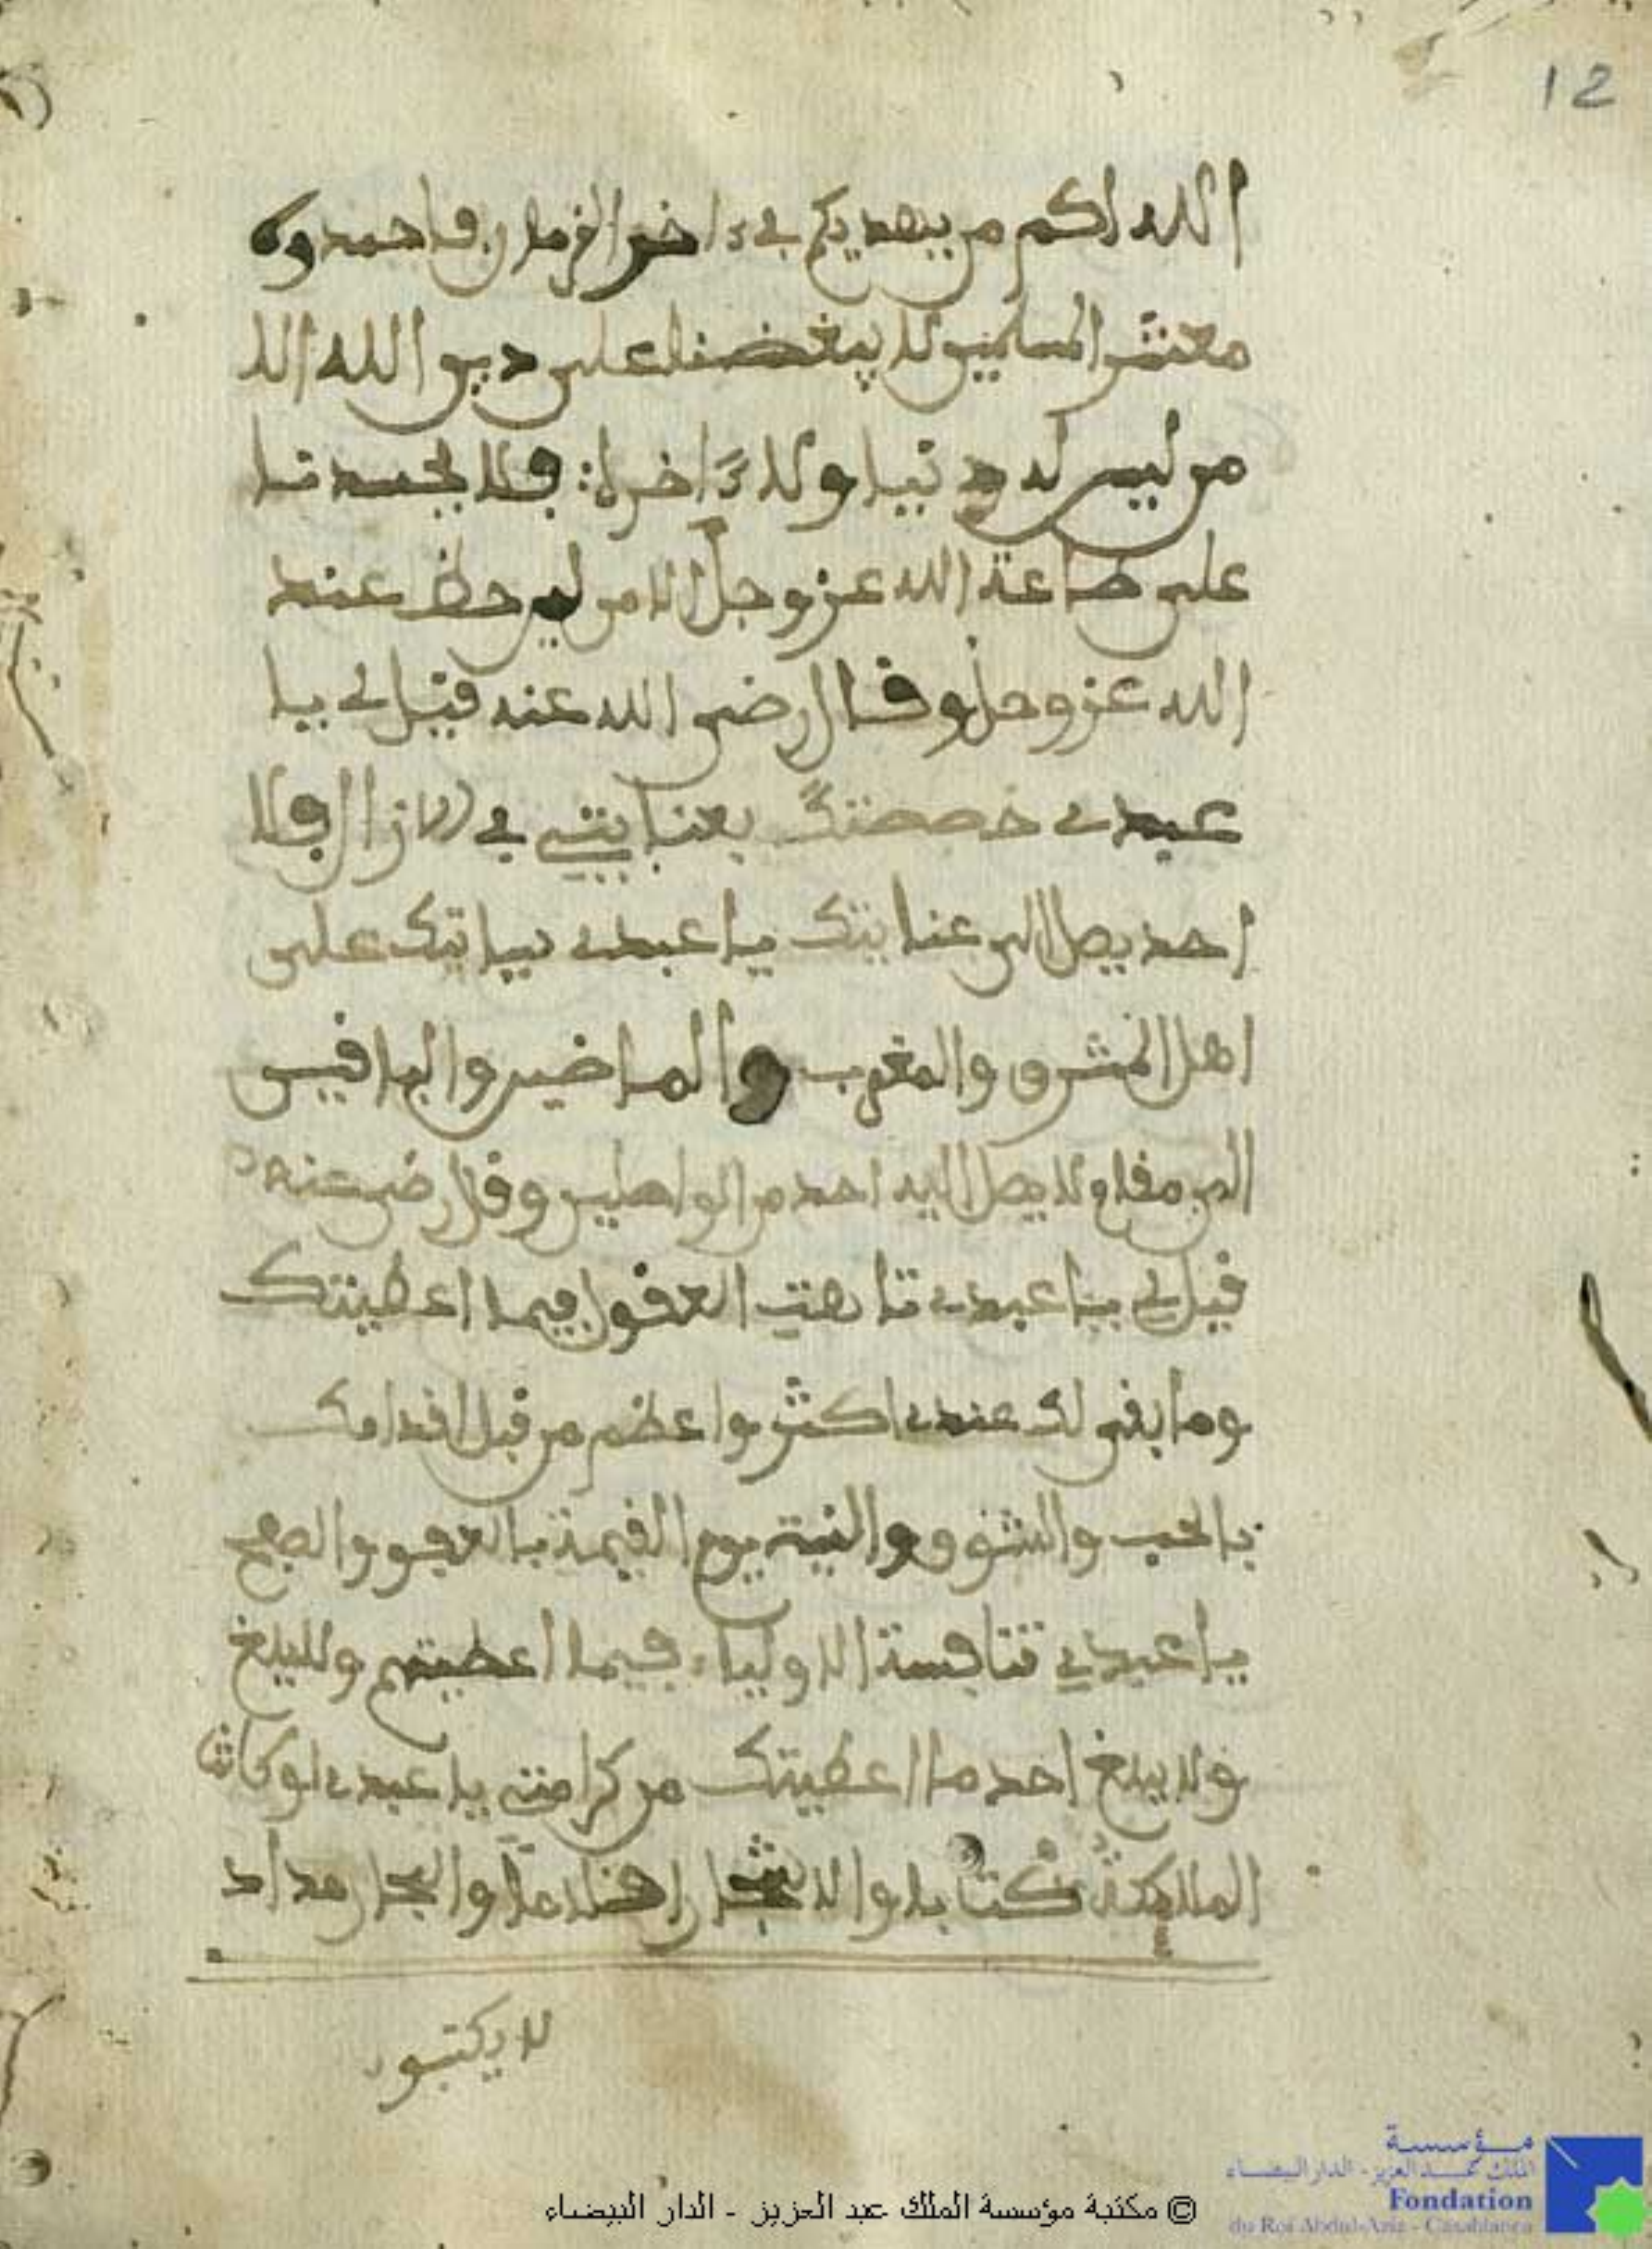 12
الله لكم من يهديكم في ءاخر الزمان فاحمدوه
معشر المسلمين لا يبغضنا على دين الله الا
من ليس له دنيا ولا ءاخرة فلا يحسدنا
على طاعة الله عز وجل الا من ليس حظ عند
الله عز وجل وقال رضي الله عنه قيل لي يا
عبدي خصصتك بعنايتي في الازال فلا
احد يصل الى عنايتك يا عبدي على
اهل المشرق والمغرب والماضين والباقين
الى مقام لا يصل اليه احد من الواصلين وقال رضي عنه
قيل لي يا عبدي تاهت العقول فيما اعطيتك
وما بقى لك عندي اكثر واعظم من قبل اقدامك
بالحب والشوق والنية يوم القيمة بالعفو والصفح
يا عبدي تنافسة الاولياء فيما اعطيتهم ولا يبلغ
ولا يبلغ احد ما اعطيتك من كرامتي يا عبدي لو كانت
الملايكة كتابا والاشجار اقلاما والبحار مداد
لا يكتبون
© مكتبة مؤسسة الملك عبد العزيز - الدار البيضاء
مؤسسة
الملك عبد العزيز - الدار البيضاء
Fondation
du Roi Abdul-Aziz - Casablanca